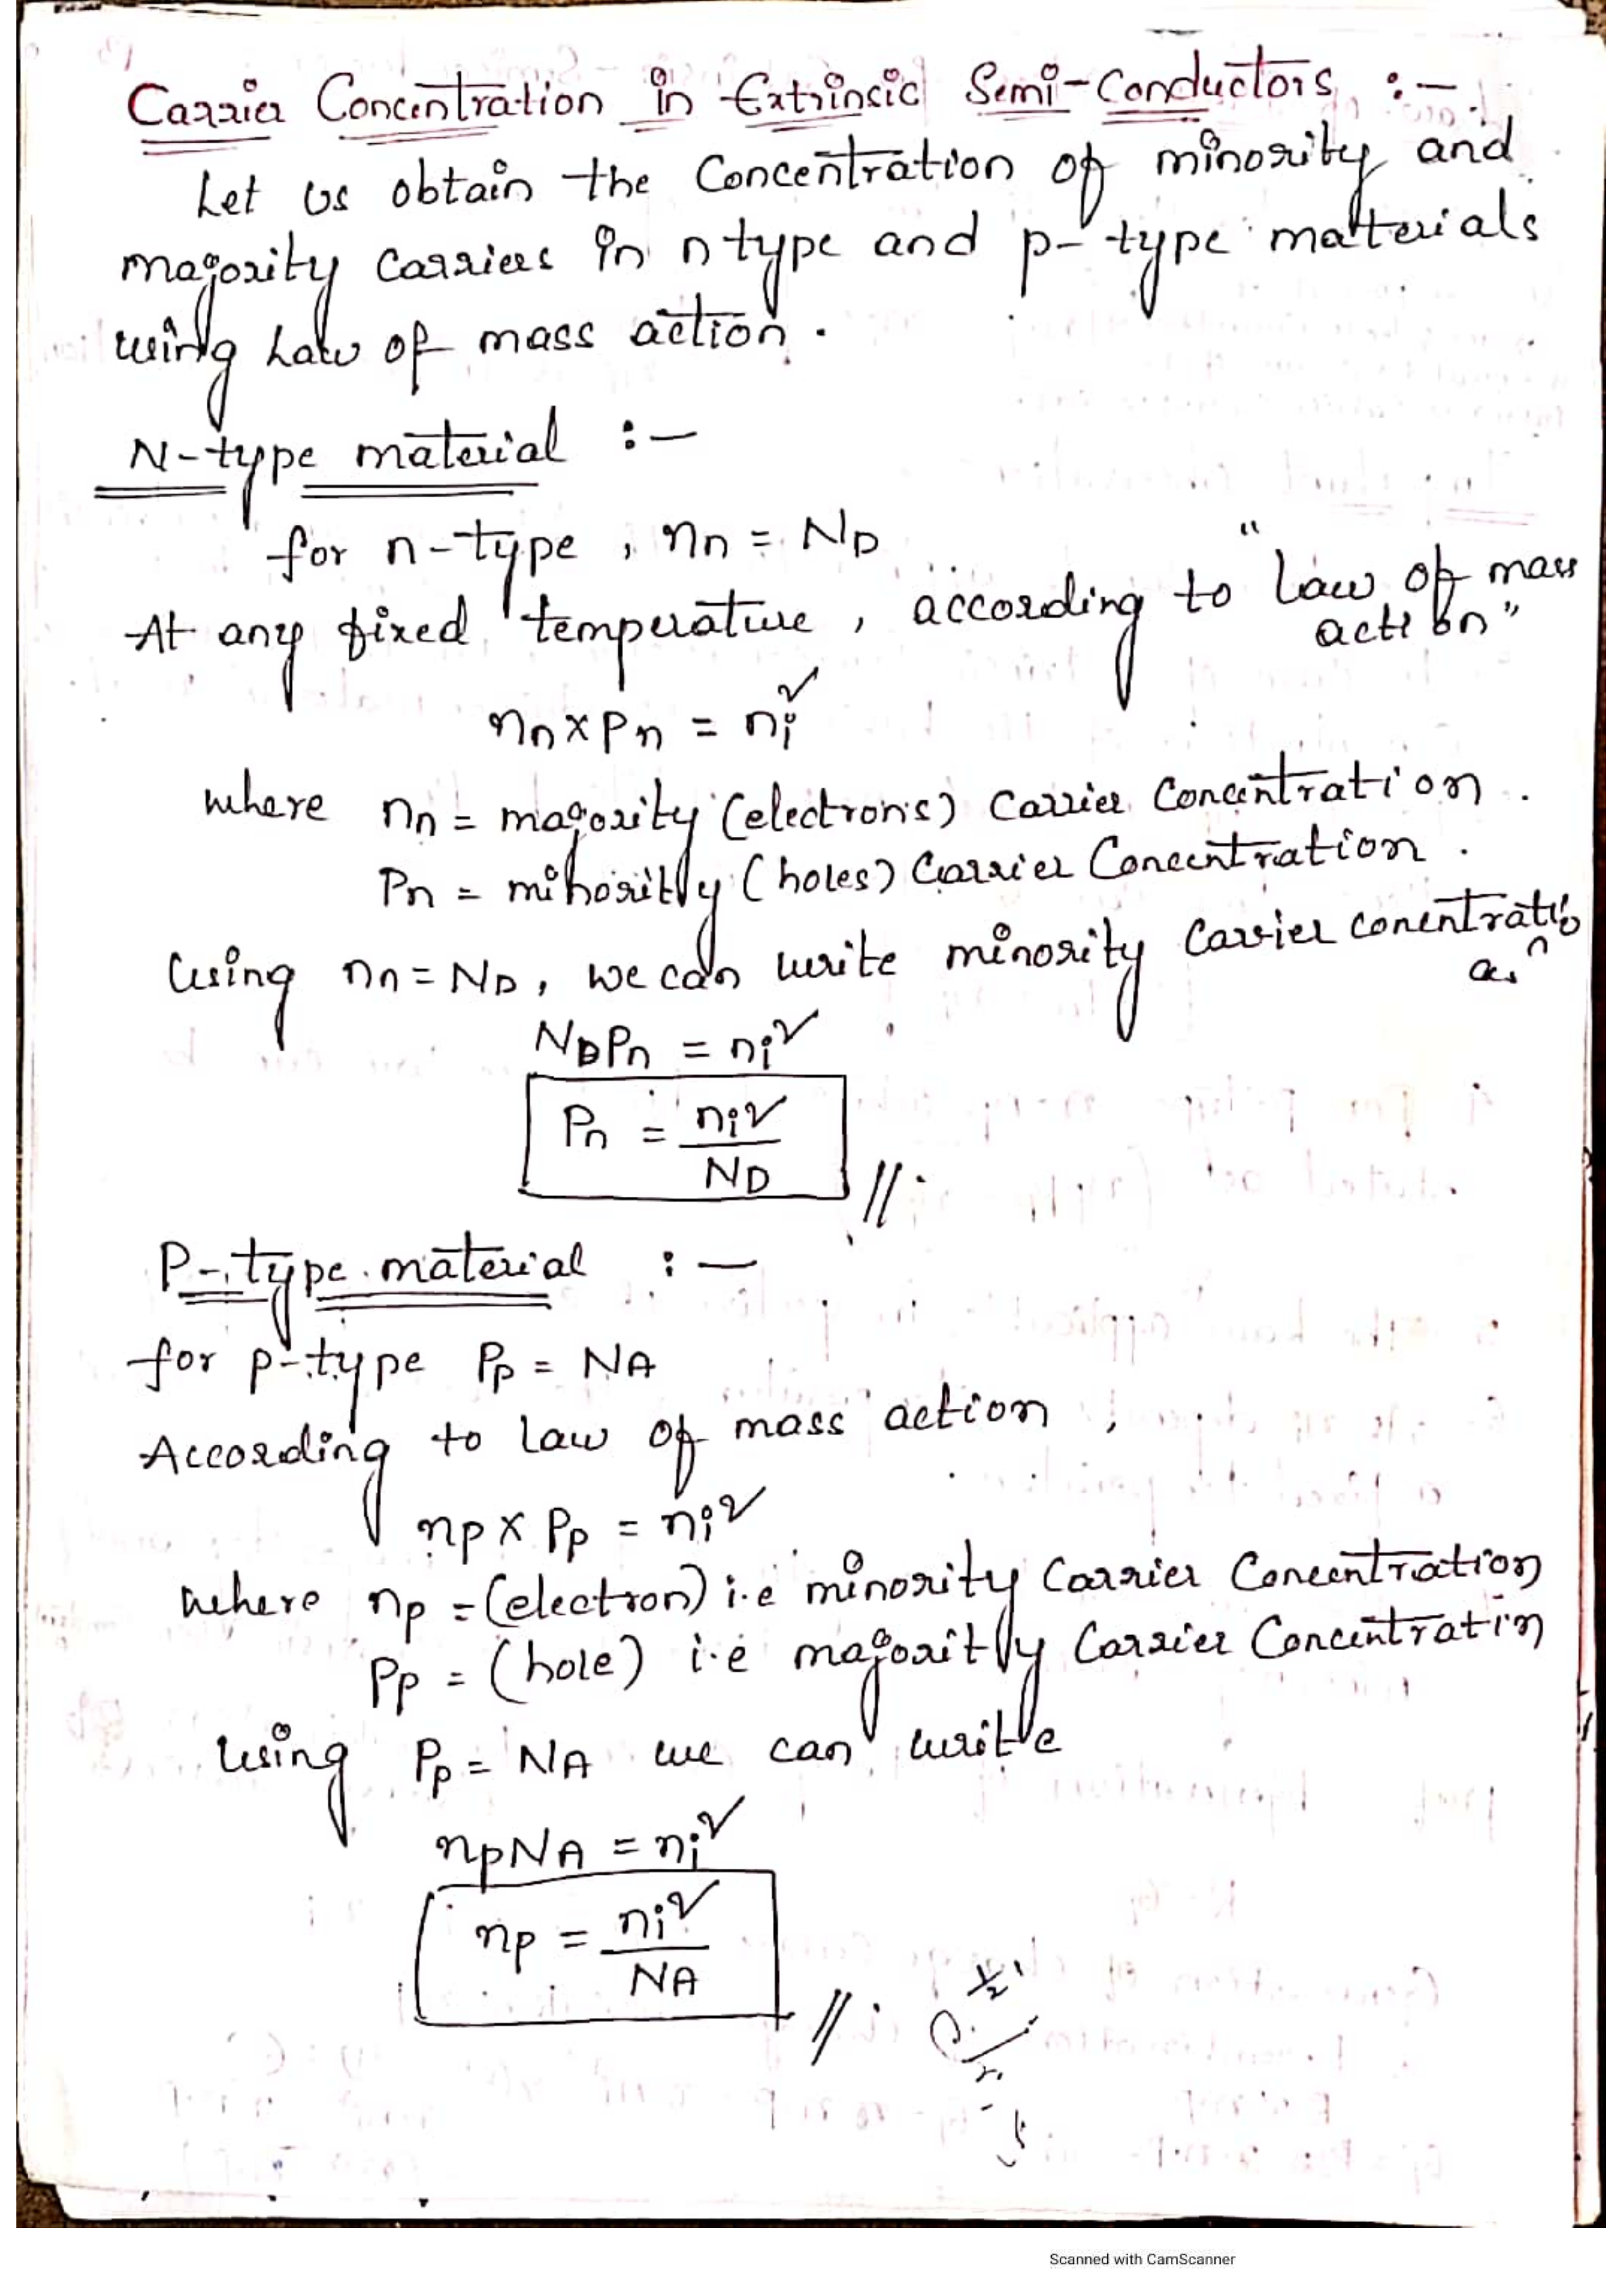 Carrier Concentration in Extrinsic Semi-Conductors :-
Let us obtain the Concentration of minority and
majority carriers in n type and p-type matterials
using Law of mass action.
N-type material :-
for n-type, nn = ND
At any fixed temperature, according to "law of mass
action"
nn x Pn = ni²
where nn = majority (electrons) Carrier Concentration.
Pn = minority (holes) Carrier Concentration.
Using nn = ND, we can write minority Carrier conentration
as
NDPn = ni²
Pn = ni²/ND //.
P-type material :-
for p-type Pp = NA
According to law of mass action,
np x Pp = ni²
where np = (electron) i.e minority Carrier Concentration
Pp = (hole) i.e majority Carrier Concentratin
Using Pp = NA we can write
npNA = ni²
np = ni²/NA //
Scanned with CamScanner